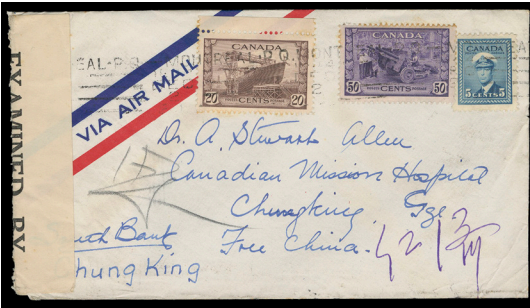 EXAMINED BY
VIA AIR MAIL
EAL-P.Q.
MONTREAL P.Q.
CANADA
20 20
CENTS
CANADA
50 50
CENTS
CANADA
5 CENTS 5
Dr. A. Stewart Allen
Canadian Mission Hospital
Chungking, Sze.
Free China.
South Bank
Chung King